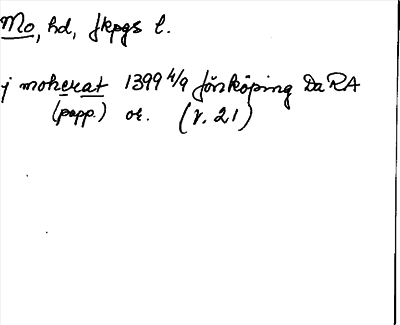 Mo, hd, Jkpgs l.
j moherat 1399 4/9 Jönköping DaRA
(papp.) or. (r. 21)